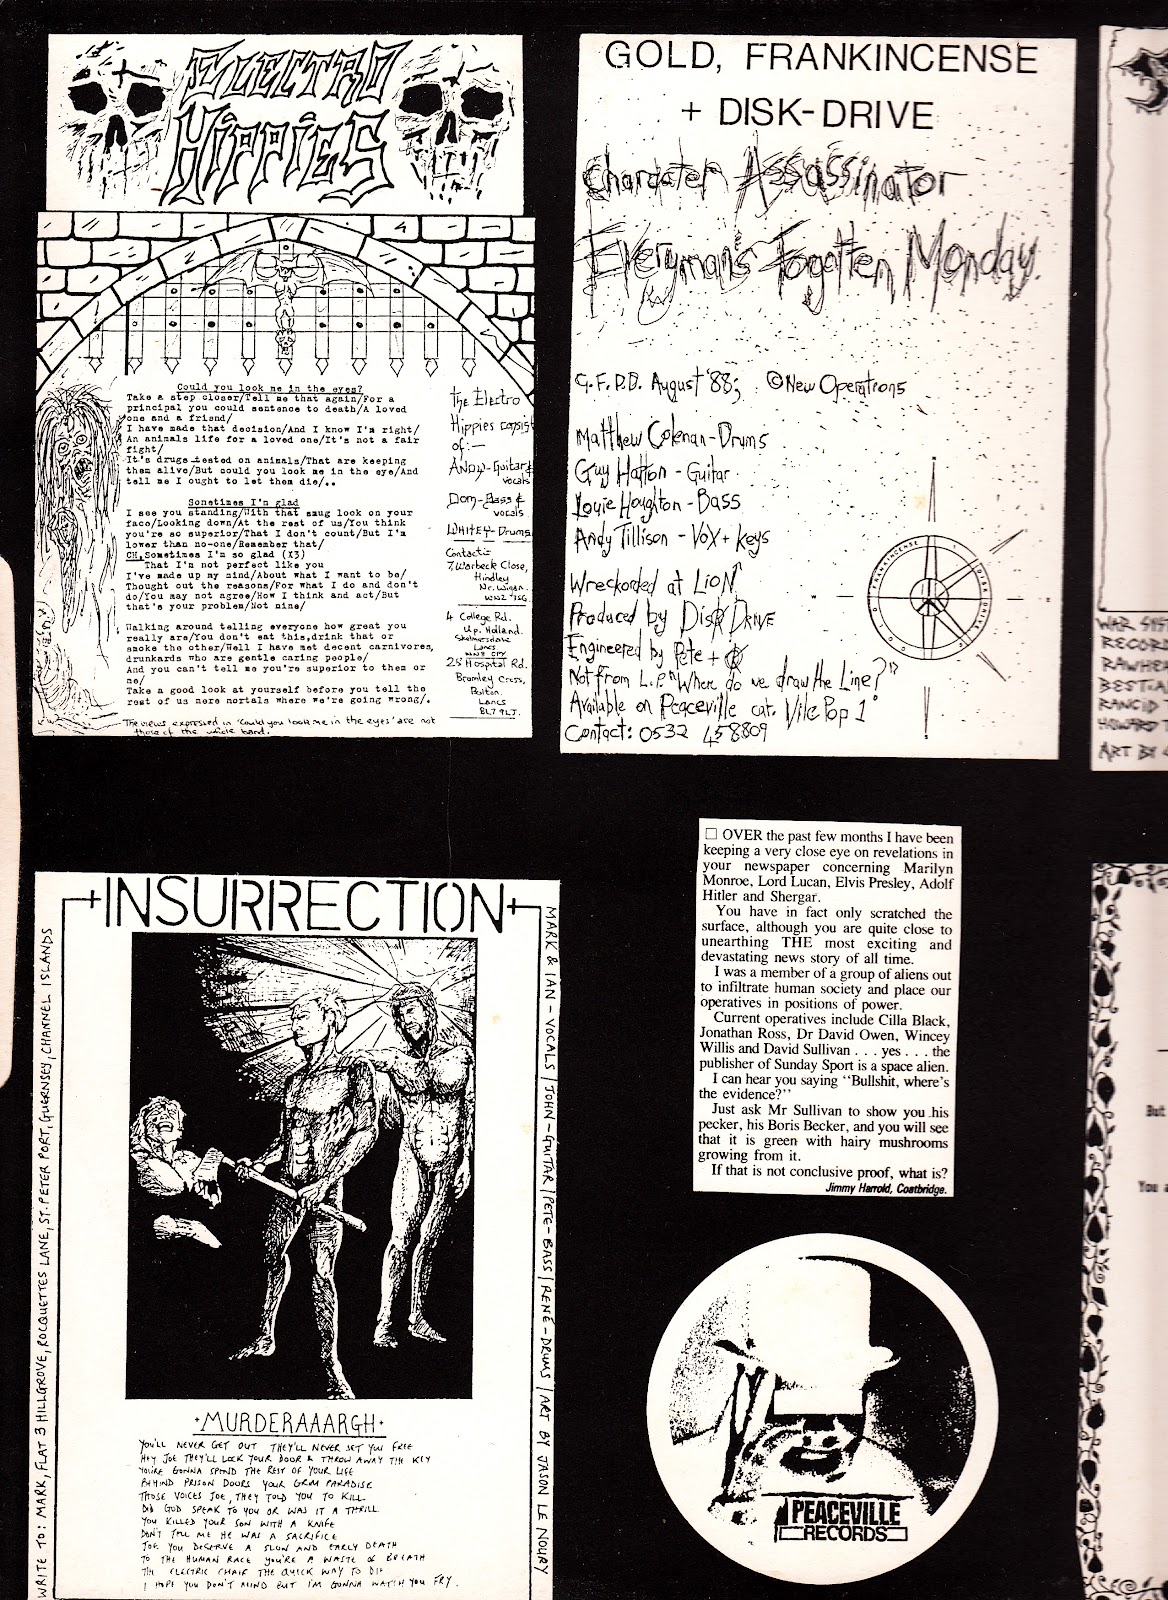 ELECTRO
HIPPIES
Could you look me in the eyes?
Take a step closer/Tell me that again/For a
principal you could sentence to death/A loved
one and a friend/
I have made that decision/And I know I'm right/
An animals life for a loved one/It's not a fair
fight/
It's drugs tested on animals/That are keeping
them alive/But could you look me in the eye/And
tell me I ought to let them die/..
Sometimes I'm glad
I see you standing/With that smug look on your
face/Looking down/At the rest of us/You think
you're so superior/That I don't count/But I'm
lower than no-one/Remember that/
CH.Sometimes I'm so glad (X3)
That I'm not perfect like you
I've made up my mind/About what I want to be/
Thought out the reasons/For what I do and don't
do/You may not agree/How I think and act/But
that's your problem/Not mine/
Walking around telling everyone how great you
really are/You don't eat this,drink that or
smoke the other/Well I have met decent carnivores,
drunkards who are gentle caring people/
And you can't tell me you're superior to them or
me/
Take a good look at yourself before you tell the
rest of us mere mortals where we're going wrong/.
The views expressed in 'Could you look me in the eyes' are not
those of the whole band.
The Electro
Hippies consist
of:—
ANDY-Guitar &
vocals
DOM-Bass &
vocals
WHITEY-Drums
Contact:-
7, Warbeck Close,
Hindley
Nr. Wigan.
4 College Rd.
Up. Holland.
Skelmersdale
Lancs
25 Hospital Rd.
Bromley Cross,
Bolton.
Lancs
BL7 9LJ.
GOLD, FRANKINCENSE
+ DISK-DRIVE
Character Assassinator
Everyman's Forgotten Monday.
G.F.D.D. August '88; ©New Operations
Matthew Colman-Drums
Guy Hatton - Guitar
Louie Houghton - Bass
Andy Tillison - Vox + Keys
Wreckorded at Lion
Produced by Disk Drive
Engineered by Pete +
Not from L.P. "Where do we draw the Line?"
Available on Peaceville cat. Vile Pop 1
Contact: 0532 458809
FRANKINCENSE
DISK DRIVE
WAR SYST
RECORD
RAWHE
BESTIA
RANCID
HOWARD T
ART BY
+INSURRECTION+
WRITE TO: MARK, FLAT 3 HILLGROVE, ROCQUETTES LANE, ST. PETER PORT, GUERNSEY, CHANNEL ISLANDS
MARK & IAN - VOCALS / JOHN - GUITAR / PETE - BASS / RENÉ - DRUMS / ART BY JASON LE NOURY
·MURDERAAARGH·
YOU'LL NEVER GET OUT THEY'LL NEVER SET YOU FREE
HEY JOE THEY'LL LOCK YOUR DOOR & THROW AWAY THE KEY
YOU'RE GONNA SPEND THE REST OF YOUR LIFE
BEHIND PRISON DOORS YOUR GRIM PARADISE
THOSE VOICES JOE, THEY TOLD YOU TO KILL
DID GOD SPEAK TO YOU OR WAS IT A THRILL
YOU KILLED YOUR SON WITH A KNIFE
DON'T TELL ME HE WAS A SACRIFICE
JOE YOU DESERVE A SLOW AND EARLY DEATH
TO THE HUMAN RACE YOU'RE A WASTE OF BREATH
THE ELECTRIC CHAIR THE QUICK WAY TO DIE
I HOPE YOU DON'T MIND BUT I'M GONNA WATCH YOU FRY.
□ OVER the past few months I have been
keeping a very close eye on revelations in
your newspaper concerning Marilyn
Monroe, Lord Lucan, Elvis Presley, Adolf
Hitler and Shergar.
You have in fact only scratched the
surface, although you are quite close to
unearthing THE most exciting and
devastating news story of all time.
I was a member of a group of aliens out
to infiltrate human society and place our
operatives in positions of power.
Current operatives include Cilla Black,
Jonathan Ross, Dr David Owen, Wincey
Willis and David Sullivan . . . yes . . . the
publisher of Sunday Sport is a space alien.
I can hear you saying “Bullshit, where's
the evidence?”
Just ask Mr Sullivan to show you his
pecker, his Boris Becker, and you will see
that it is green with hairy mushrooms
growing from it.
If that is not conclusive proof, what is?
Jimmy Harrold, Coatbridge.
But
You a
PEACEVILLE
RECORDS